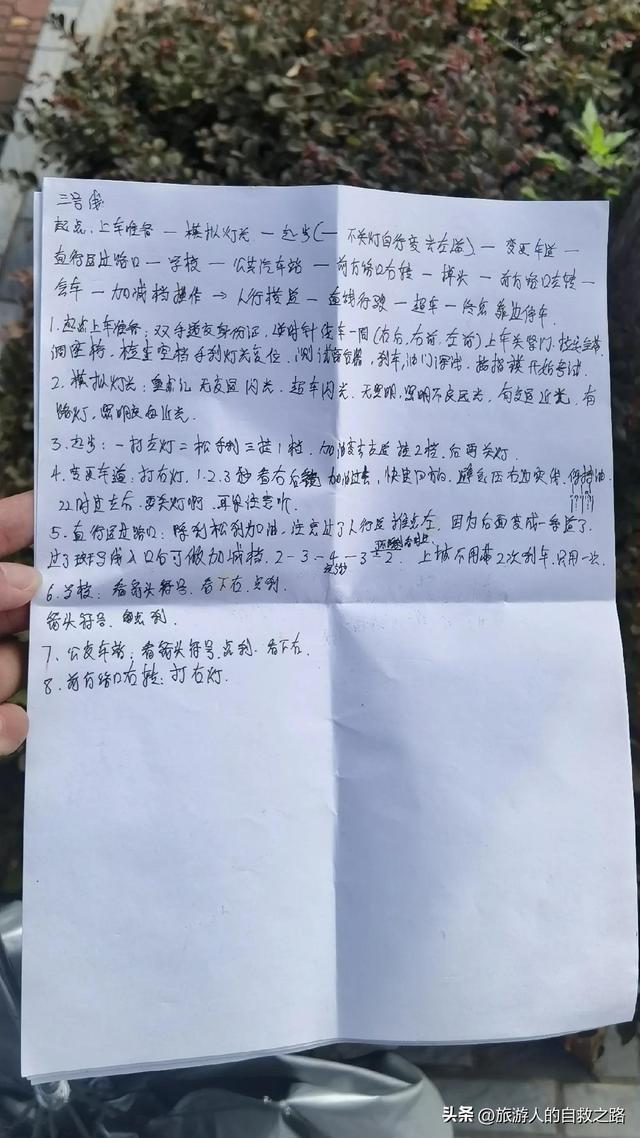 三号线
起点.上车准备一模拟灯光一起步(一不关灯自行变去左道)一变更车道一
直行区过路口一学校一公共汽车站一前方路口右转一掉头一前方路口左转一
会车一加减档操作→人行横道一直线行驶一超车一终点靠边停车.
1.起点上车准备:双手递交身份证,逆时针绕车一周(右后,右前.左前)上车关车门,拉安全带
调座椅.检查空档手刹灯光复位.测试 刹车,油门深浅.按指模开始考试.
2.模拟灯光:重点记 无夜区闪光.超车闪光.无照明,照明不良区光,有夜区近光.有
路灯,照明良好近光.
3.起步:一打左灯二松手刹三挂1档,加油变去左道挂2档,后再关灯.
4.变更车道:打右灯,1.2.3秒看右后 加油过去,快速回方向.避免压右边实线,保持油
22时速左右.要关灯啊,耳朵注意听.
5.直行区过路口:踩刹松刹加油,注意过了人行道靠左,因为后面变成一条道了
过了斑马线入口后可做加减档.2-3-4-3-2.上坡不用带2次刹车.只用一次.
6.学校:看箭头符号.看下右.点刹
箭头符号. 点刹.
7、公交车站:看箭头符号.点刹.看下右.
8.前方路口右转:打右灯.
头条 @旅游人的自救之路